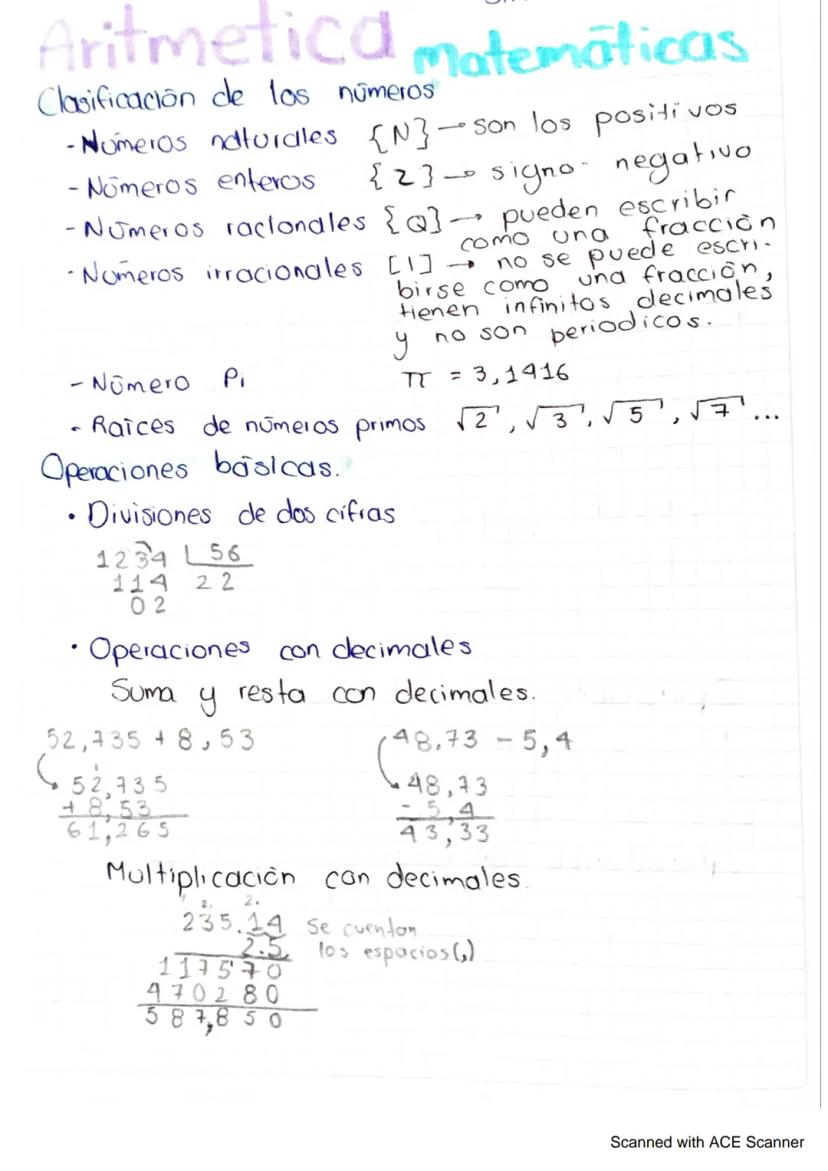 Aritmetica Matemáticas
Clasificación de los números
- Números naturales {N} → son los positivos
- Números enteros {Z} → signo - negativo
- Números racionales {Q} → pueden escribir
como una fracción
- Números irracionales [I] → no se puede escri-
birse como una fracción,
tienen infinitos decimales
y no son periodicos.
- Número Pi π = 3,1416
- Raíces de números primos √2, √3, √5, √7 ...
Operaciones básicas.
• Divisiones de dos cifras
1234 56
114 22
02
• Operaciones con decimales
Suma y resta con decimales.
52,735 + 8,53 48,73 - 5,4
1
52,735 48,73
+ 8,53 - 5,4
61,265 43,33
Multiplicación con decimales
1 2. 2.
235.14 Se cuentan
2.5 los espacios(,)
117570
470280
587,850
Scanned with ACE Scanner